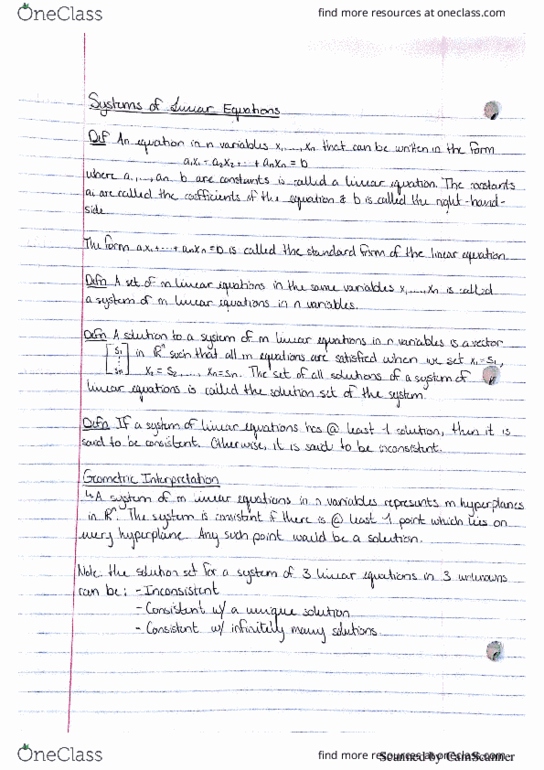 OneClass
find more resources at oneclass.com
Systems of Linear Equations
Def An equation in n variables x₁,...,xn that can be written in the form
a₁x₁ + a₂x₂ + ... + anxn = b
where a₁,...,an, b are constants is called a linear equation. The constants
ai are called the coefficients of the equation & b is called the right-hand-
side.
The form ax₁+...+anxn=0 is called the standard form of the linear equation.
Defn A set of m linear equations in the same variables x₁,...,xn is called
a system of m linear equations in n variables.
Defn A solution to a system of m linear equations in n variables is a vector
[s₁ ⋮ sn] in Rⁿ such that all m equations are satisfied when we set x₁=s₁,
x₂ = s₂,..., xn=sn. The set of all solutions of a system of
linear equations is called the solution set of the system.
Defn If a system of linear equations has @ least 1 solution, then it is
said to be consistent. Otherwise, it is said to be inconsistent.
Geometric Interpretation
↳A system of m linear equations in n variables represents m hyperplanes
in Rⁿ. The system is consistent if there is @ least 1 point which lies on
every hyperplane. Any such point would be a solution.
Note the solution set for a system of 3 linear equations in 3 unknowns
can be: - Inconsistent
- Consistent w/ a unique solution
- Consistent w/ infinitely many solutions.
OneClass
find more resources at oneclass.com
Scanned by CamScanner